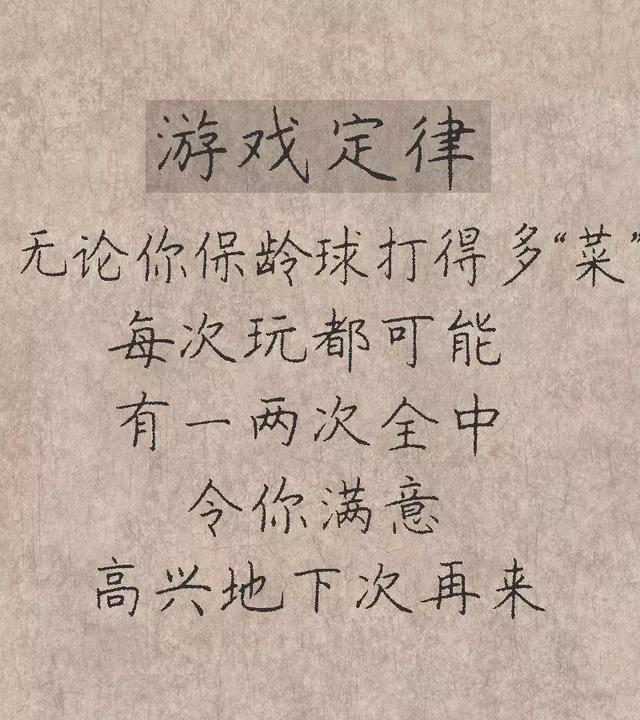 游戏定律
无论你保龄球打得多“菜”
每次玩都可能
有一两次全中
令你满意
高兴地下次再来